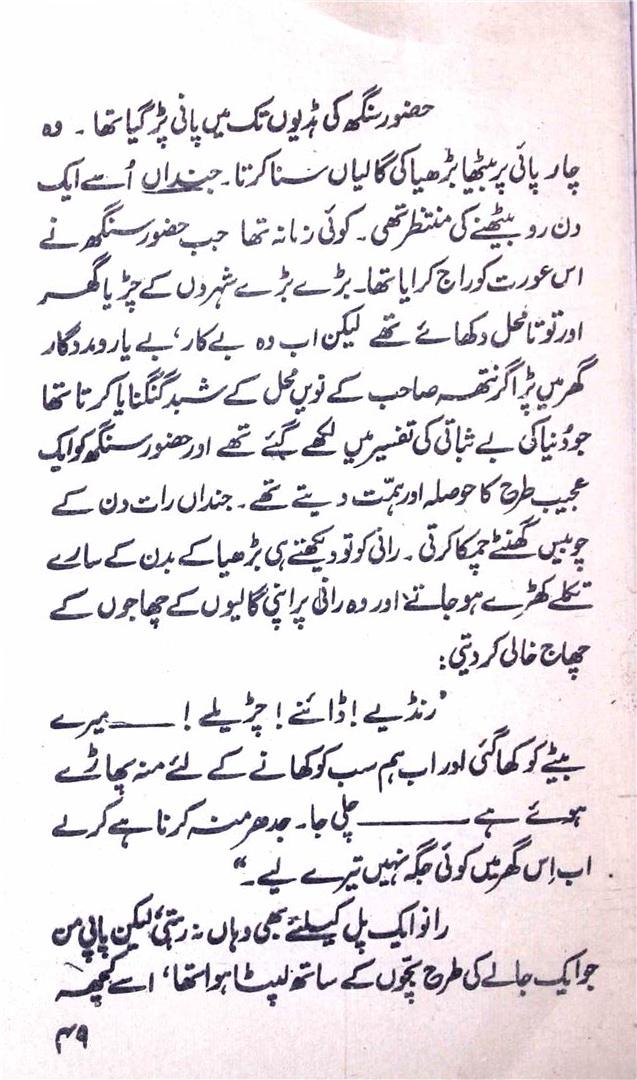 حضور سنگھ کی ہڈیوں تک میں پانی پڑ گیا تھا۔ وہ
چارپائی پر بیٹھا بڑھیا کی گالیاں سنا کرتا۔ جنداں اُسے ایک
دن رو بیٹھنے کی منتظر تھی۔ کوئی زمانہ تھا جب حضور سنگھ نے
اس عورت کو راج کرایا تھا۔ بڑے بڑے شہروں کے چڑیا گھر
اور توتا محل دکھائے تھے لیکن اب وہ بے کار، بے یار و مددگار
گھر میں پڑا گرنتھ صاحب کے نویں محل کے شبد گنگنایا کرتا تھا
جو دُنیا کی بے ثباتی کی تفسیر میں لکھے گئے تھے اور حضور سنگھ کو ایک
عجیب طرح کا حوصلہ اور ہمّت دیتے تھے۔ جنداں رات دن کے
چوبیس گھنٹے جھمکا کرتی۔ رانی کو تو دیکھتے ہی بڑھیا کے بدن کے سارے
تکلے کھڑے ہو جاتے اور وہ رانی پر اپنی گالیوں کے چھاجوں کے
چھاج خالی کر دیتی:
"رنڈیے! ڈائنے! چڑیلے! ——— میرے
بیٹے کو کھا گئی اور اب ہم سب کو کھانے کے لئے منہ پھاڑے
ہوئے ہے ——— چلی جا۔ جدھر منہ کرنا ہے کر لے
اب اِس گھر میں کوئی جگہ نہیں تیرے لیے۔"
رانو ایک پل کیلئے بھی وہاں نہ رہتی، لیکن پاپی من
جو ایک جالے کی طرح بچّوں کے ساتھ لپٹا ہوا تھا، اسے کچھ
۴۹